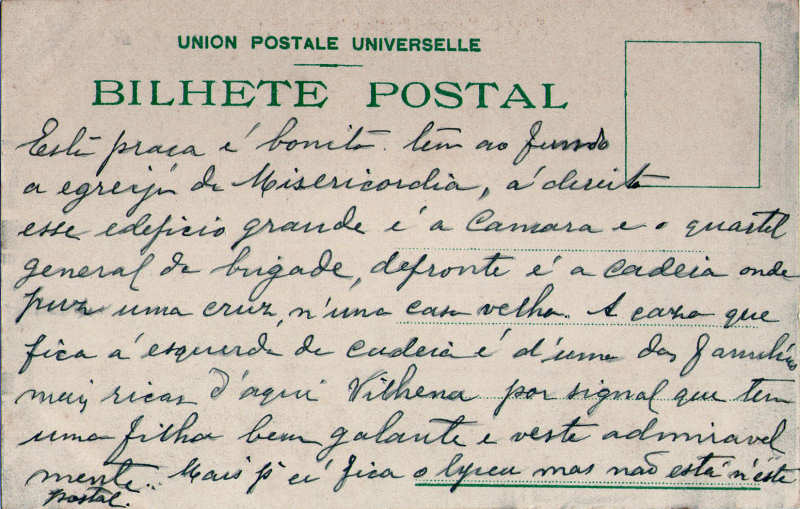 UNION POSTALE UNIVERSELLE
BILHETE POSTAL
Está praça é bonita. tem ao fundo
a egreija da Misericordia, á direita
esse edeficio grande é a Camara e o quartel
general da brigade, defronte é a cadeia onde
puz uma cruz, n'uma casa velha. A caza que
fica á esquerda da cadeia é d'uma das familias
mais ricas d'aqui Vilhena por signal que tem
uma filha bem galante e veste admiravel
mente. Mais p'ra fica o lyceu mas não está n'éste
postal.